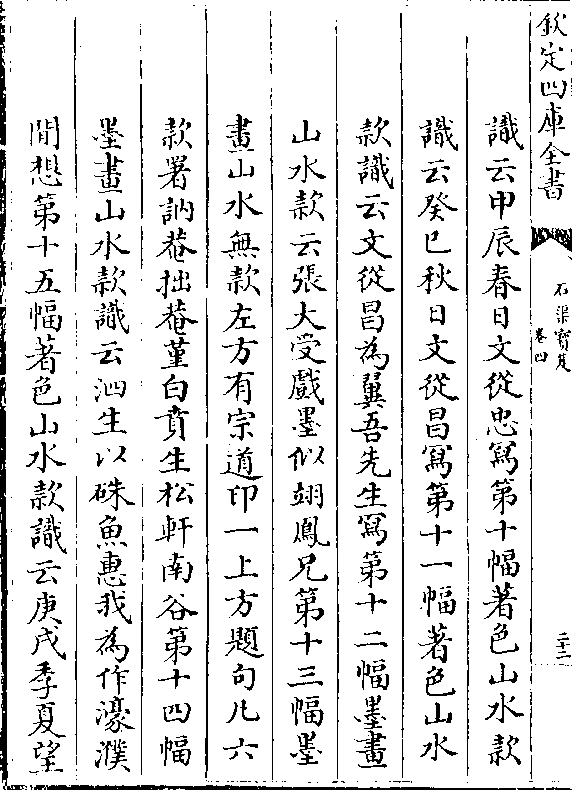 欽定四庫全書
石渠寶笈
卷四
二十二
識云甲辰春日文從忠寫第十幅著色山水款
識云癸巳秋日文從昌寫第十一幅著色山水
款識云文從昌為巽吾先生寫第十二幅墨畫
山水款云張大受戲墨似翊鳳兄第十三幅墨
畫山水無款左方有宗道印一上方題句凡六
款署訥菴拙菴菫白賁生松軒南谷第十四幅
墨畫山水款識云泗生以硃魚惠我為作濠濮
閒想第十五幅著色山水款識云庚戌季夏望